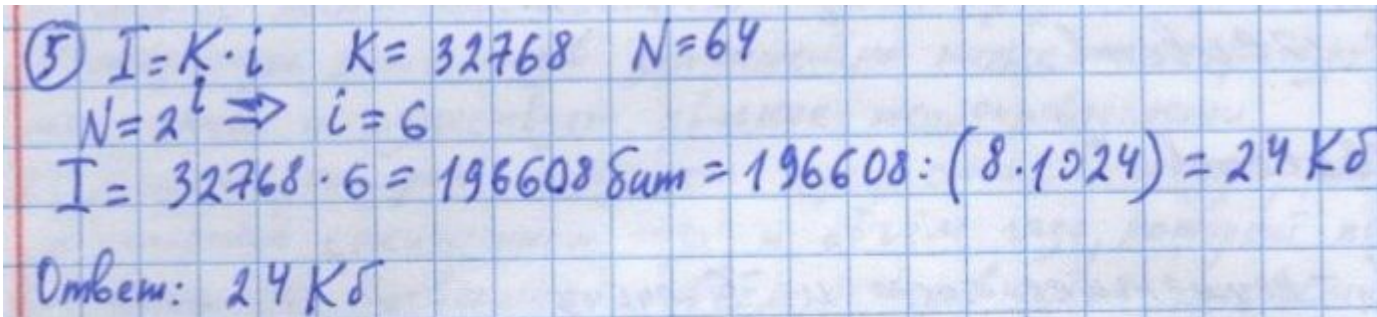 ⑤ I = K · i K = 32768 N = 64
N = 2ⁱ ⇒ i = 6
I = 32768 · 6 = 196608 бит = 196608 : (8 · 1024) = 24 Кб
Ответ: 24 Кб